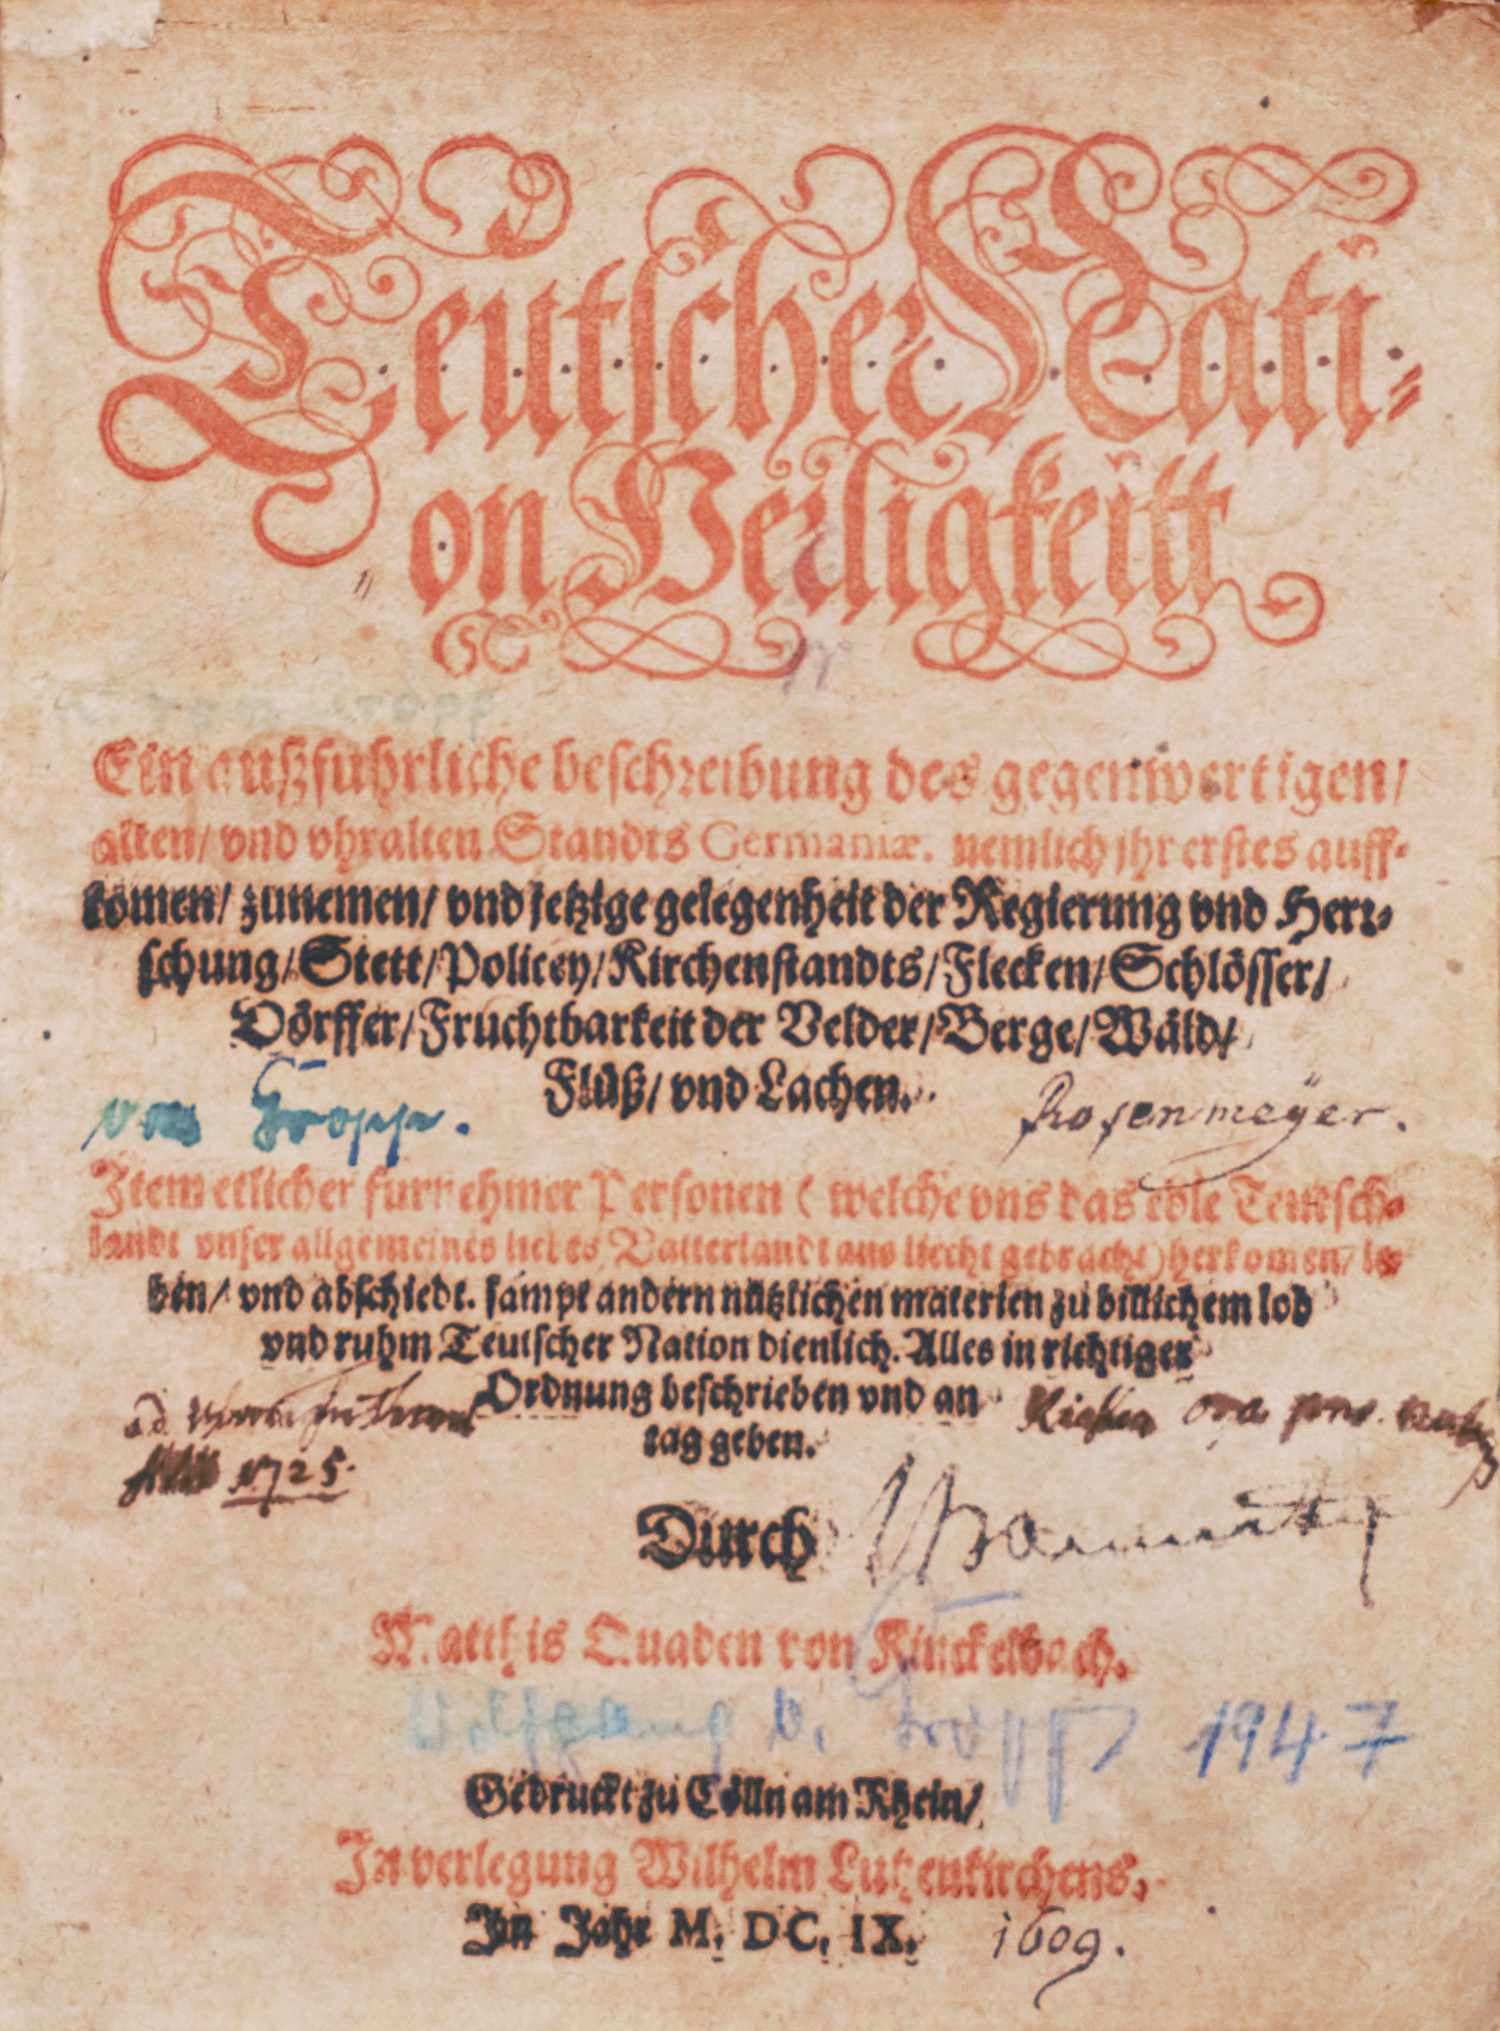 Teutscher Nati-
on Herligkeitt
Ein außfuhrliche beschreibung des gegenwertigen/
alten/ vnd vhralten Standts Germaniæ. nemlich ihr erstes auff-
komen/ zunemen/ vnd jetzige gelegenheit der Regierung vnd Herr-
schung/ Stett/ Policey/ Kirchenstandts/ Flecken/ Schlösser/
Dörffer/ Fruchtbarkeit der Velder/ Berge/ Wäld/
Flüß/ vnd Lachen.
von Gropp.
Rosenmeÿer.
Item etlicher furnehmer Personen ( welche vns das edle Teutsch-
landt vnser allgemeines liebes Vatterlandt ans liecht gebracht) herkomen/ le-
ben/ vnd abschiedt. sampt andern nützlichen materien zu billichem lob
vnd ruhm Teutscher Nation dienlich. Alles in richtiger
Ordnung beschrieben vnd an
tag geben.
1725.
Durch
Matthis Quaden von Kinckelbach.
Wolfgang v. Gropp 1947
Gedruckt zu Cölln am Rhein/
In verlegung Wilhelm Lutzenkirchens.
Im Jahr M. DC. IX. 1609.